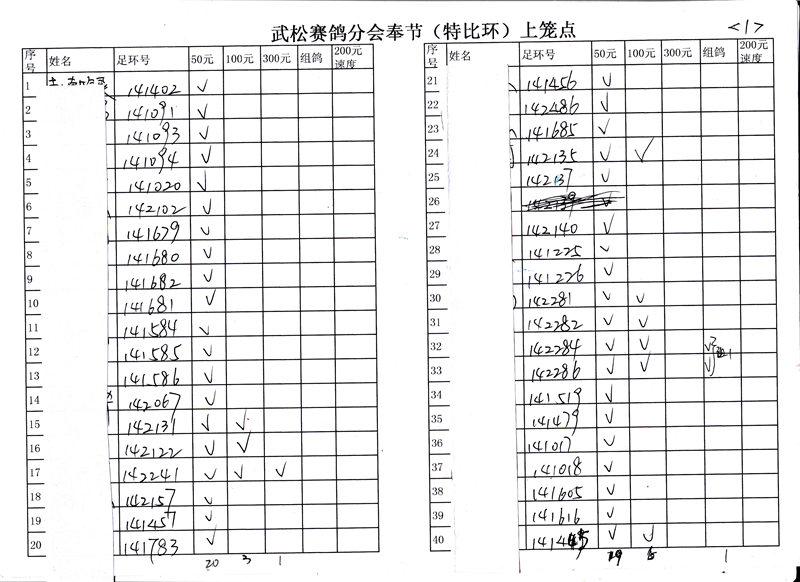 武松赛鸽分会奉节（特比环）上笼点 <1>
序号 姓名 足环号 50元 100元 300元 组鸽 200元速度
1 141402 √
2 141091 √
3 141093 √
4 141094 √
5 141020 √
6 142102 √
7 141679 √
8 141680 √
9 141682 √
10 141681 √
11 141584 √
12 141585 √
13 141586 √
14 142067 √
15 142131 √ √
16 142122 √ √
17 142241 √ √ √
18 142157 √
19 141457 √
20 141783 √
20 3 1
序号 姓名 足环号 50元 100元 300元 组鸽 200元速度
21 141456 √
22 142486 √
23 141685 √
24 142135 √ √
25 142137 √
26
27 142140 √
28 141225 √
29 141226 √
30 142281 √ √
31 142282 √ √
32 142284 √ √ √
33 142286 √ √ √
34 141519 √
35 141479 √
36 141017 √
37 141018 √
38 141605 √
39 141616 √
40 √ √
19 1